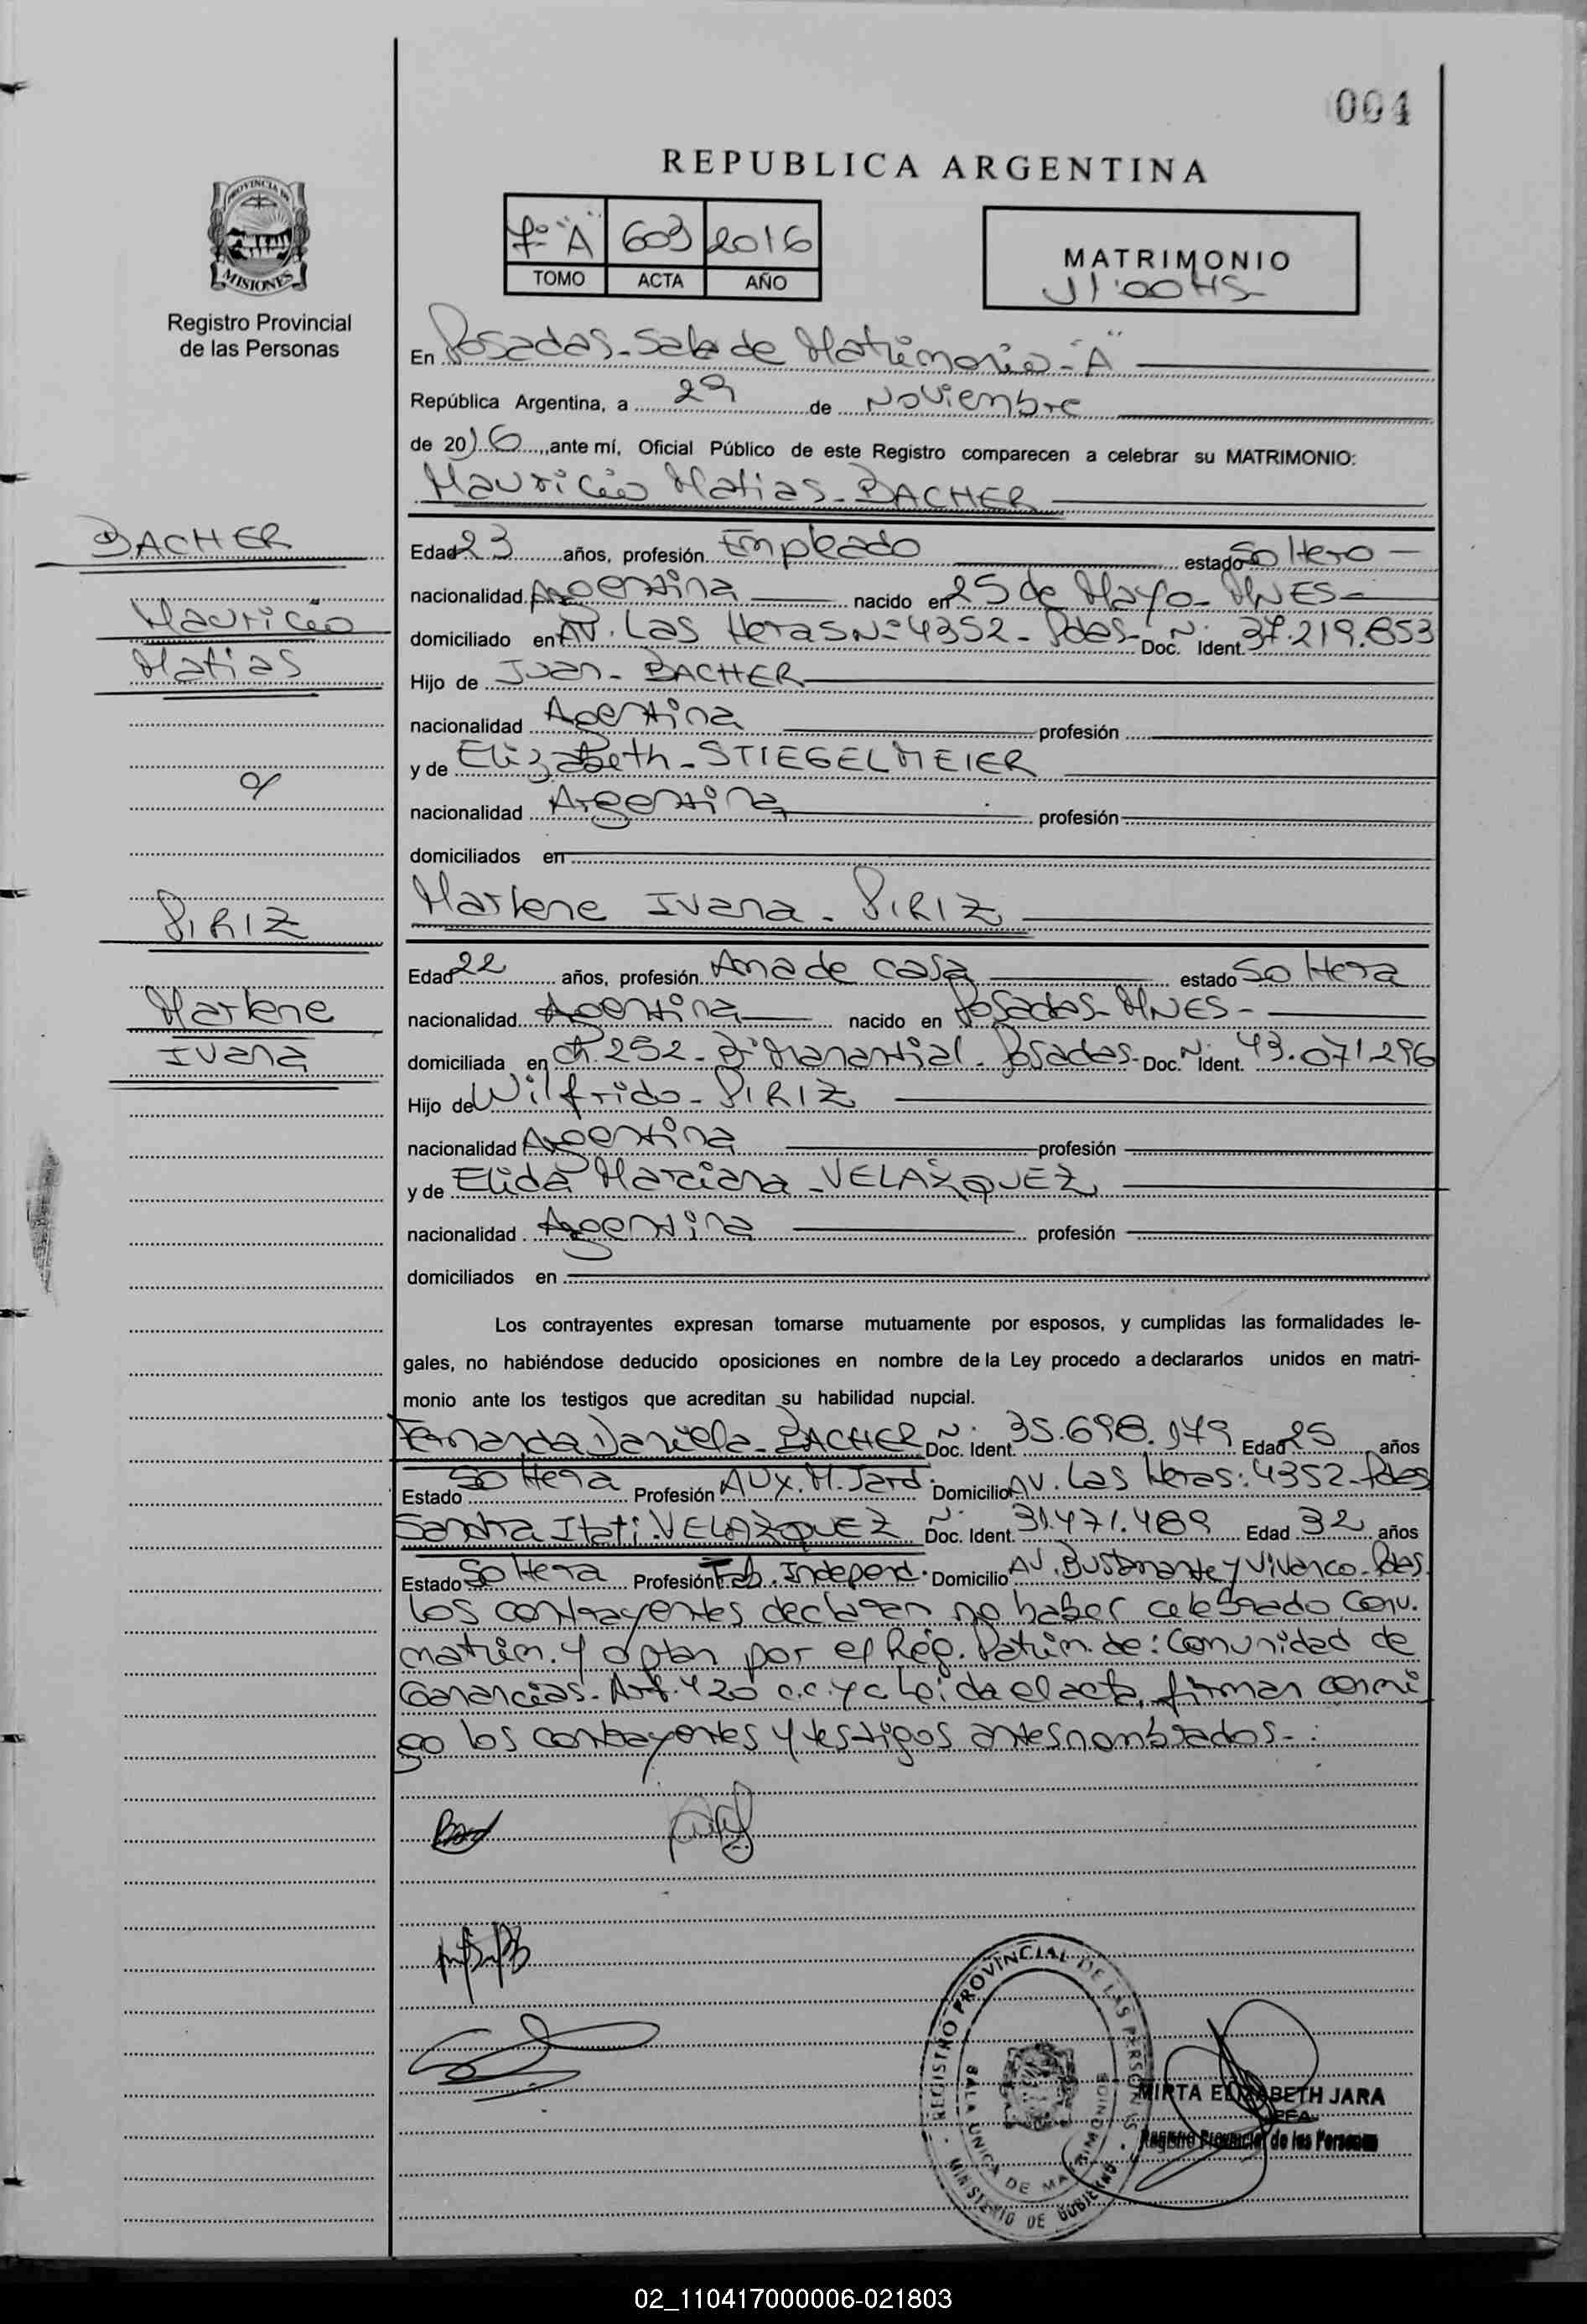 004
REPUBLICA ARGENTINA
PROVINCIA DE
MISIONES
Registro Provincial
de las Personas
"A" 603 2016
TOMO ACTA AÑO
MATRIMONIO
11:00 HS-
En Posadas-Sala de Matrimonio-"A"
República Argentina, a 29 de Noviembre
de 2016, ante mí, Oficial Público de este Registro comparecen a celebrar su MATRIMONIO:
Mauricio Matias-BACHER
BACHER
Mauricio
Matias
Edad 23 años, profesión Empleado estado Soltero-
nacionalidad Argentina nacido en 25 de Mayo-MNES-
domiciliado en AV. Las Heras Nº 4352-Pdas- Doc. Nº Ident. 37.219.853
Hijo de Juan-BACHER
nacionalidad Agentina profesión
y de Elizabeth-STIEGELMEIER
nacionalidad Argentina profesión
domiciliados en
PIRIZ
Marlene
Ivana
Marlene Ivana-PIRIZ
Edad 22 años, profesión Ama de casa estado Soltera
nacionalidad Agentina nacido en Posadas-MNES-
domiciliada en Ch. 252- Bº Manantial-Posadas- Doc. Nº Ident. 43.071.296
Hijo de Wilfrido-PIRIZ
nacionalidad Argentina profesión
y de Elida Marciana-VELAZQUEZ
nacionalidad Argentina profesión
domiciliados en
Los contrayentes expresan tomarse mutuamente por esposos, y cumplidas las formalidades le-
gales, no habiéndose deducido oposiciones en nombre de la Ley procedo a declararlos unidos en matri-
monio ante los testigos que acreditan su habilidad nupcial.
Fernanda Daniela-BACHER Nº Doc. Ident. 35.698.179 Edad 25 años
Estado Soltera Profesión AUX. M. Jard. Domicilio AV. Las Heras: 4352-Pdas
Sandra Itati-VELAZQUEZ Nº Doc. Ident. 31.471.489 Edad 32 años
Estado Soltera Profesión Trab. Independ. Domicilio AV. Bustamante y Vivanco-Pdas.
Los contrayentes declaran no haber celebrado Conv.
matrim. y optan por el Rég. Patrim. de: Comunidad de
Ganancias-Art. 420 c.c.y c Leída el acta, firman conmi
go los contrayentes y testigos antesnombrados-.
REGISTRO PROVINCIAL DE LAS PERSONAS
SALA UNICA DE MATRIMONIOS
MINISTERIO DE GOBIERNO
MIRTA ELIZABETH JARA
Registro Provincial de las Personas
02_110417000006-021803